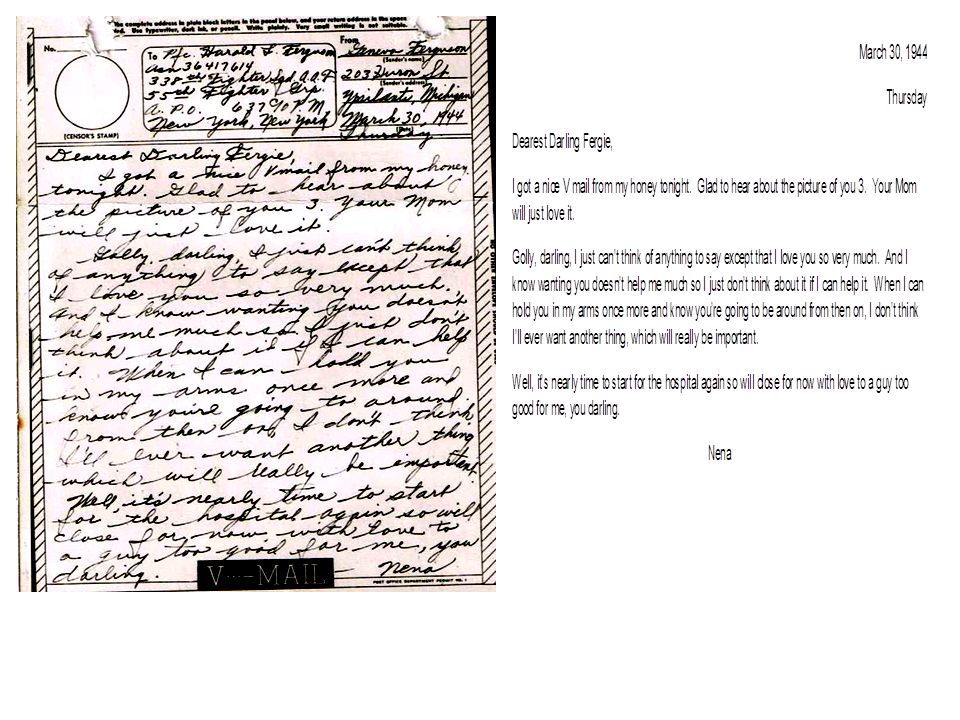 the complete address in plain block letters in the panel below, and your return address in the space
rd. Use typewriter, dark ink, or pencil. Write plainly. Very small writing is not suitable.
No.
(CENSOR'S STAMP)
To Pfc. Harald L. Ferguson
Asn 36417614
338th Fighter Sqd. A.A.F
55th Fighter Grp.
A.P.O. 637 c/o P.M.
New York, New York
From
Geneva Ferguson
(Sender's name)
203 Huron St.
(Sender's address)
Ypsilanti, Michigan
March 30, 1944
(Date)
Thursday
Dearest Darling Fergie,
I got a nice Vmail from my honey
tonight. Glad to hear about
the picture of you 3. Your Mom
will just love it.
Golly, darling, I just can't think
of anything to say except that
I love you so very much.
And I know wanting you doesn't
help me much so I just don't
think about it if I can help
it. When I can hold you
in my arms once more and
know you're going to around
from then on, I don't think
I'll ever want another thing
which will really be important.
Well, it's nearly time to start
for the hospital again so will
close for now with love to
a guy too good for me, you
darling.
Nena
V···—MAIL
POST OFFICE DEPARTMENT PERMIT NO. 1
March 30, 1944
Thursday
Dearest Darling Fergie,
I got a nice V mail from my honey tonight. Glad to hear about the picture of you 3. Your Mom
will just love it.
Golly, darling, I just can't think of anything to say except that I love you so very much. And I
know wanting you doesn't help me much so I just don't think about it if I can help it. When I can
hold you in my arms once more and know you're going to be around from then on, I don't think
I'll ever want another thing, which will really be important.
Well, it's nearly time to start for the hospital again so will close for now with love to a guy too
good for me, you darling.
Nena